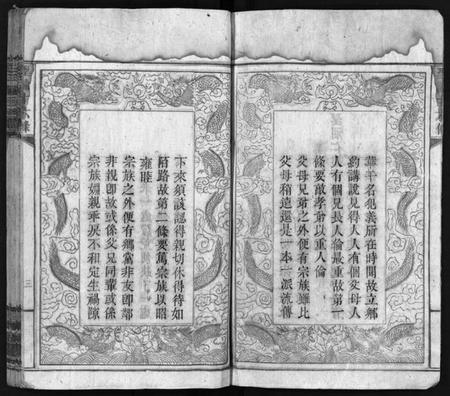 華干名犯義所在時間故立鄉
約講說見得人人有個父母人
人有個兄長人倫最重故第一
條要敦孝弟以重人倫
父母兄弟之外便有宗族雖比
父母稍遠還是一本一派流傳
下來須認得親切休得待如
陌路故第二條要篤宗族以昭
雍睦
宗族之外便有鄉黨非友即鄰
非親即故或係父兄同輩或係
宗族婣親乖戾不和定生禍隙
三